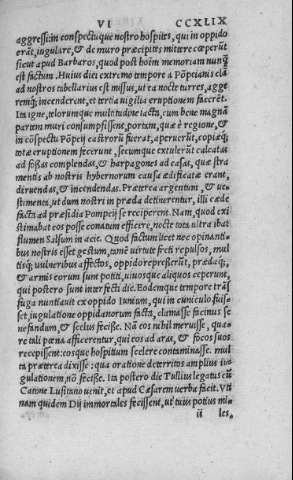 VI CCXLIX
aggressi: in conspectuque nostro hospites, qui in oppido
erãt, iugulare, & de muro præcipites mittere cæperũt
sicut apud Barbaros, quod post hoĩm memoriam nunq̃
est factum. Huius diei extremo tempore a Põpeianis clã
ad nostros tabellarius est missus, ut ea nocte turres, agge
remq; incenderent, et tertia uigilia eruptionem facerẽt.
Ita igne, telorumque multitudine iacta, cum bene magnã
partem muri consumpsissent, portam, quæ è regione, &
in cõspectu Põpeij castrorũ fuerat, aperuerũt, copiæq;
totæ eruptionem fecerunt, secumque extulerũt calcatas
ad fossas complendas, & harpagones ad casas, quæ stra
mentis ab nostris hybernorum causa ædificatæ erant,
diruendas, & incendendas. Præterea argentum, & ue-
stimenta, ut dum nostri in præda detinerentur, illi cæde
facta ad præsidia Pompeij se reciperent. Nam, quod exi
stimabat eos posse conatum efficere, nocte tota ultra ibat
flumen Salsum in acie. Quod factum licet nec opinanti-
bus nostris esset gestum, tamẽ uirtute freti repulsos, mul
tisq; uulneribus affectos, oppido represserũt, prædaq;,
& armis eorum sunt potiti, uiuosque aliquos ceperunt,
qui postero sunt interfecti die. Eodemque tempore trãs
fuga nuntiauit ex oppido Iunium, qui in cuniculo fuis-
set, iugulatione oppidanorum facta, clamasse facinus se
nefandum, & scelus fecisse. Nã eos nihil meruisse, qua-
re tali pœna afficerentur, qui eos ad aras, & focos suos
recepissent: eosque hospitium scelere contaminasse. mul
ta præterea dixisse: qua oratione deterritos amplius iu-
gulationem nõ fecisse. Ita postero die Tullius legatus cũ
Catone Lusitano uenit, et apud Cæsarem uerba fecit. Vti
nam quidem Dij immortales fecissent, ut tuus potius mi-
ii les,